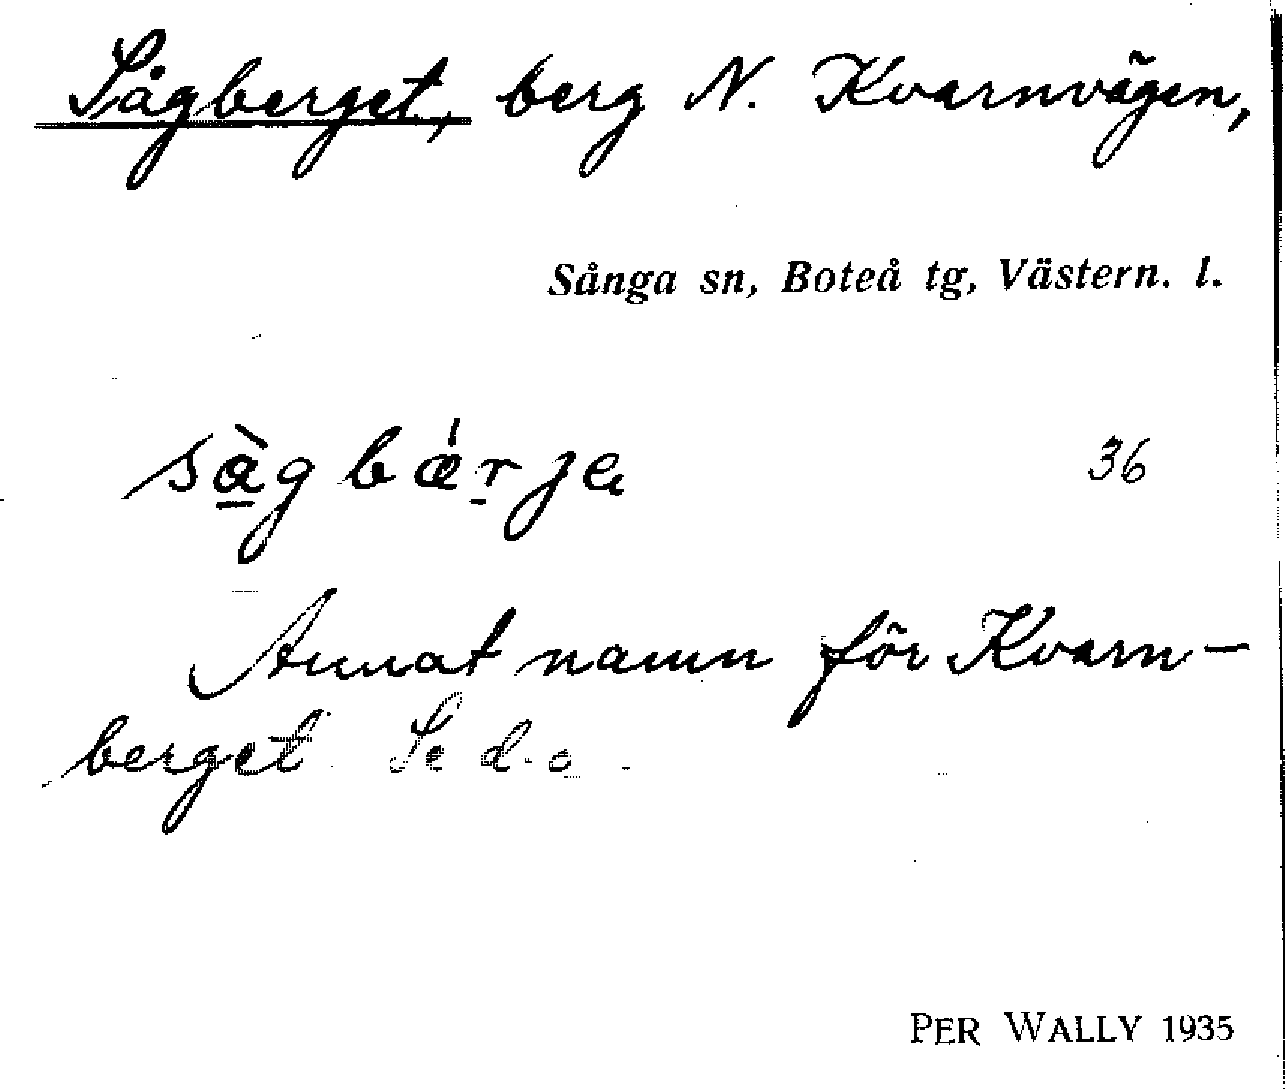 Sågberget, berg N. Kvarnvägen,
Sånga sn, Boteå tg, Västern. l.
sàgbǽrje 36
Annat namn för Kvarn-
berget. Se d.o.
PER WALLY 1935